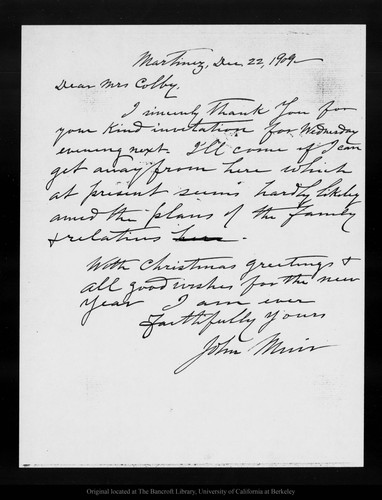 Martinez, Dec 22, 1909
Dear Mrs Colby,
I sincerely thank you for
your kind invitation for Wednesday
evening next. I'll come if I can
get away from here which
at present seems hardly likely
amid the plans of the family
& relatives
With Christmas greetings &
all good wishes for the new
year I am ever
Faithfully yours
John Muir
Original located at The Bancroft Library, University of California at Berkeley